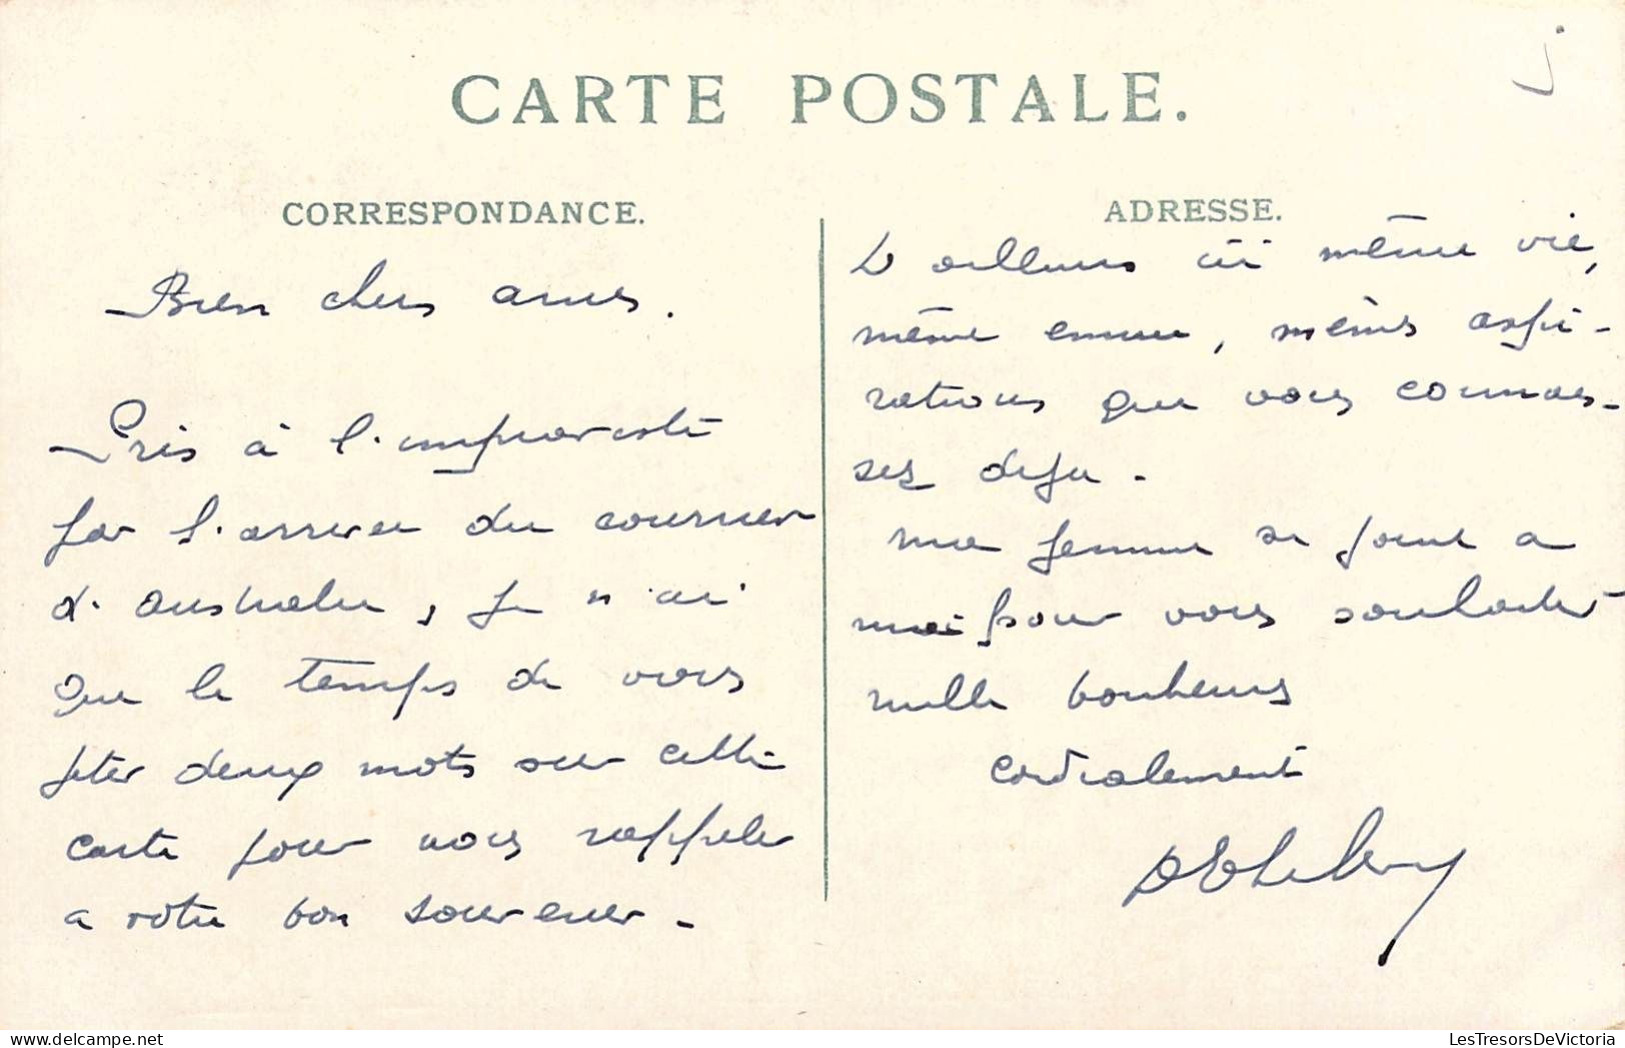 CARTE POSTALE.
CORRESPONDANCE.
Bien chers amis.
Pris à l'improviste
par l'arrivée du courrier
d'Australie, je n'ai
que le temps de vous
jeter deux mots sur cette
carte pour nous rappeler
a votre bon souvenir -
ADRESSE.
D'ailleurs ici même vie,
même ennui, mêmes aspi-
rations que vous connais-
sez deja -
ma femme se joint a
moi pour vous souhaiter
mille bonheurs
cordialement
LesTresorsDeVictoria